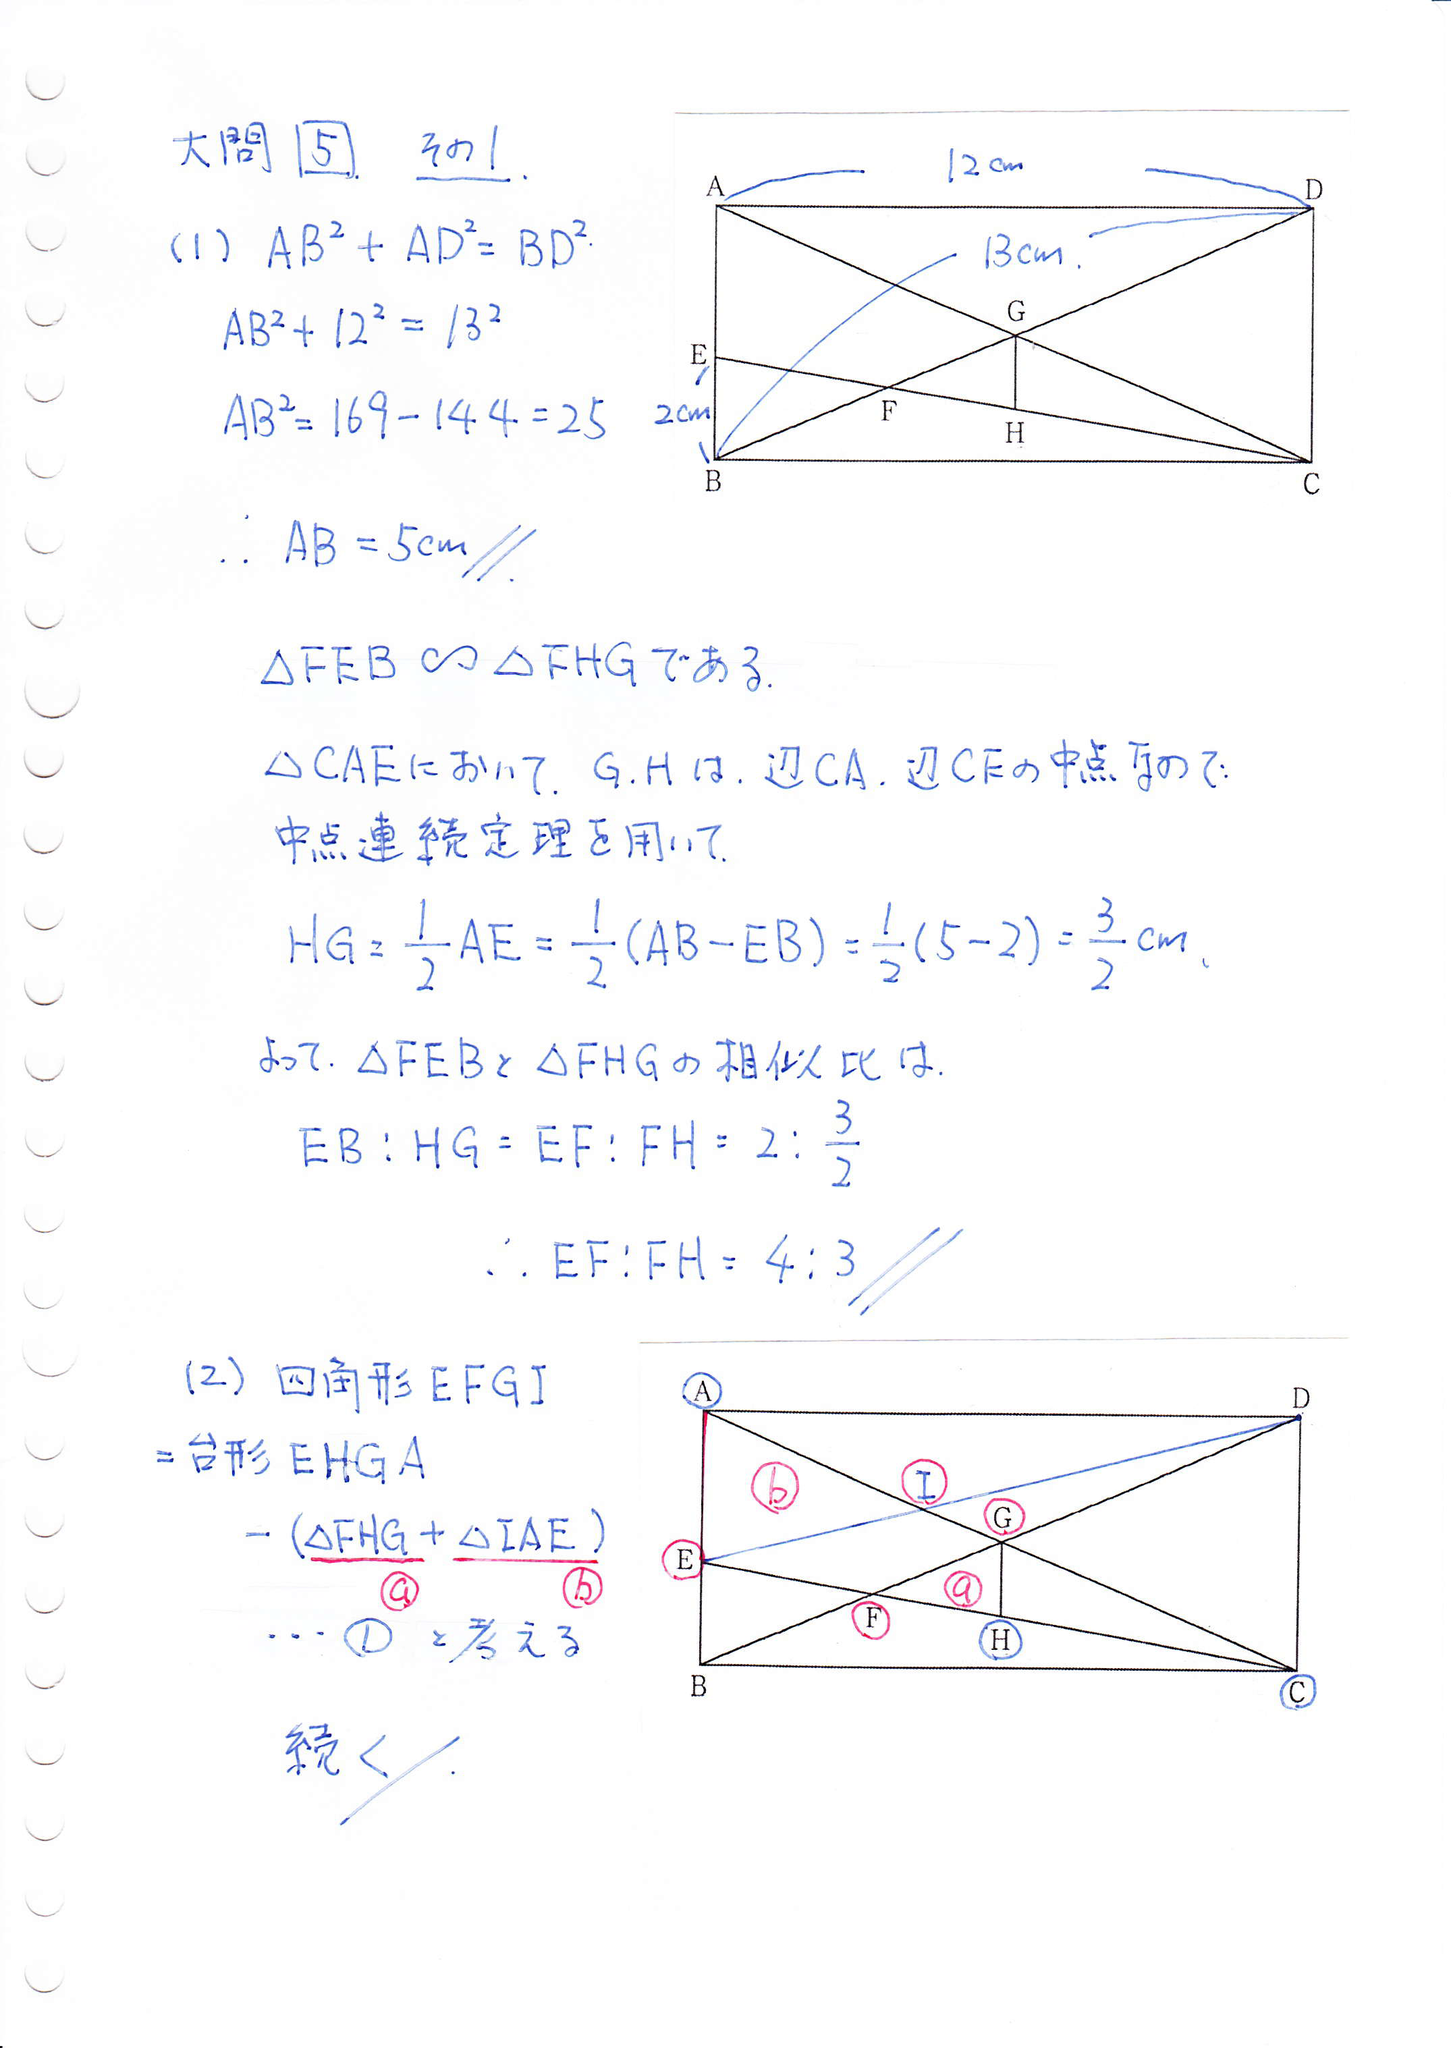 大問 5 その1.
(1) AB² + AD² = BD².
AB² + 12² = 13²
AB² = 169 - 144 = 25
∴ AB = 5cm
12cm
A
D
13cm.
G
E
2cm
F
H
B
C
△FEB ∽ △FHGである.
△CAEにおいて. G.Hは. 辺CA. 辺CEの中点なので.
中点連続定理を用いて.
HG = 1/2 AE = 1/2 (AB - EB) = 1/2 (5 - 2) = 3/2 cm.
よって. △FEBと△FHGの相似比は.
EB : HG = EF : FH = 2 : 3/2
∴ EF : FH = 4 : 3
(2) 四角形EFGI
= 台形EHGA
- (△FHG + △IAE)
ⓐ ⓑ
… ① と考える
続く.
A
D
ⓑ
I
G
E
ⓐ
F
H
B
C